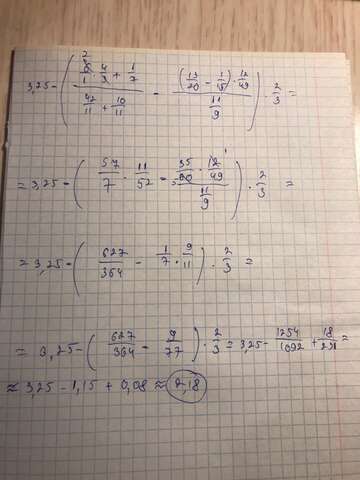 3,25 - ( (6/1 · 4/3 + 1/7) / (42/11 + 10/11) - ((13/20 - 1/15) · 12/49) / (11/9) ) · 2/3 =
= 3,25 - ( 57/7 · 11/52 - (35/60 · 12/49) / (11/9) ) · 2/3 =
= 3,25 - ( 627/364 - 1/7 · 9/11 ) · 2/3 =
= 3,25 - ( 627/364 - 9/77 ) · 2/3 = 3,25 - 1254/1092 + 18/231 =
≈ 3,25 - 1,15 + 0,08 ≈ 2,18